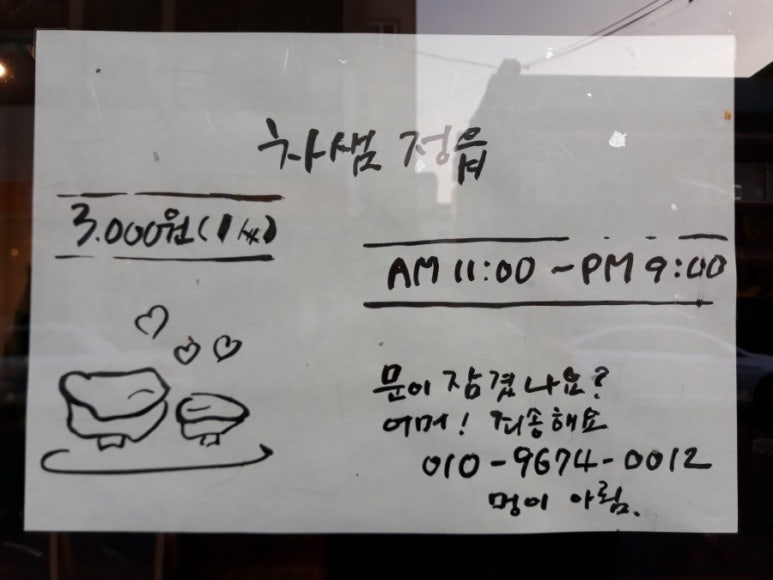 차샘 정읍
3.000원(1人)
AM 11:00 ~ PM 9:00
문이 잠겼나요?
어머! 죄송해요
010-9674-0012
멍이 아림.